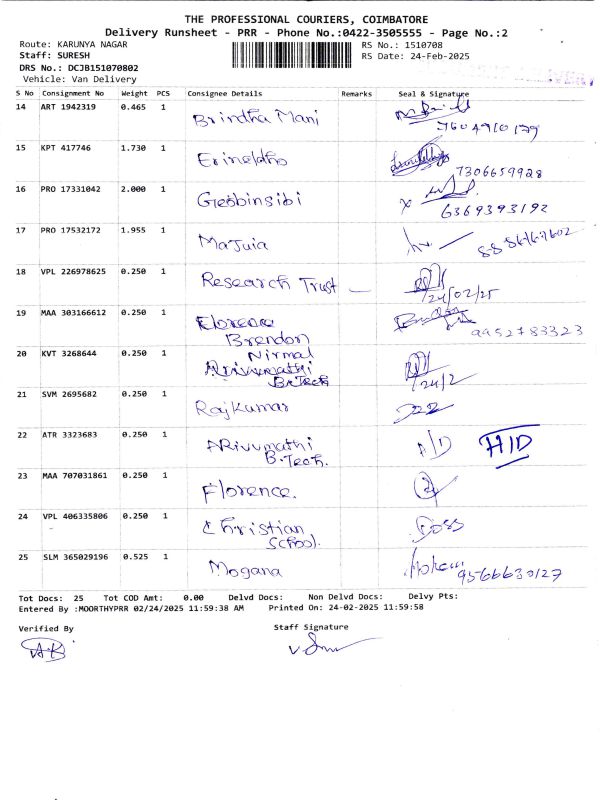 THE PROFESSIONAL COURIERS, COIMBATORE
Delivery Runsheet - PRR - Phone No.:0422-3505555 - Page No.:2
Route: KARUNYA NAGAR RS No.: 1510708
Staff: SURESH RS Date: 24-Feb-2025
DRS No.: DCJB151070802
Vehicle: Van Delivery
S No Consignment No Weight PCS Consignee Details Remarks Seal & Signature
14 ART 1942319 0.465 1 Brindha Mani
7604910179
15 KPT 417746 1.730 1
7306659928
16 PRO 17331042 2.000 1 Geobinsibi
6369393192
17 PRO 17532172 1.955 1 Majuia
18 VPL 226978625 0.250 1 Research Trust
24/02/25
19 MAA 303166612 0.250 1 Florence
Brendon 9952783323
20 KVT 3268644 0.250 1 Nirmal
Arivumathi
B.Tech 24/2
21 SVM 2695682 0.250 1 Rajkumar
22 ATR 3323683 0.250 1 ARivumathi H/D
B.Tech.
23 MAA 707031861 0.250 1 Florence.
24 VPL 406335806 0.250 1 Christian Doss
School.
25 SLM 365029196 0.525 1 Mogana
9566630127
Tot Docs: 25 Tot COD Amt: 0.00 Delvd Docs: Non Delvd Docs: Delvy Pts:
Entered By :MOORTHYPRR 02/24/2025 11:59:38 AM Printed On: 24-02-2025 11:59:58
Verified By Staff Signature